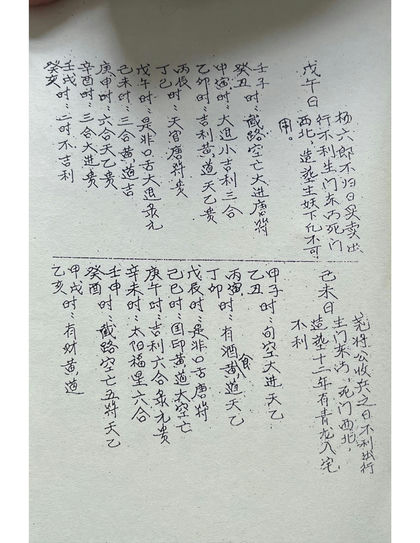 戊午日
杨六郎不归日买卖出
行不利生门东西死门
西北,造塟主妖下凡不可
用。
壬子时:截路空亡大进唐符
癸丑
甲寅时:大退小吉利三合
乙卯时:吉利黄道天乙贵
丙辰时:天官唐符贵
丁巳
戊午时:是非口舌大退
己未时:三合黄道吉
庚申时:六合天乙贵
辛酉时:三合大进贵
壬戌时:二时不吉利
癸亥
己未日
姜将公收兵之日不利出行
生门东西,死门西北,
造塟十二年有青龙入宅
不利
甲子时:旬空大进天乙
乙丑
丙寅时:有酒食黄道天乙
丁卯
戊辰时:是非口舌唐符
己巳时:国印黄道大空亡
庚午时:吉利六合
辛未时:太阳福星六合
壬申时:截路空亡五符天乙
癸酉
甲戌时:有财黄道
乙亥